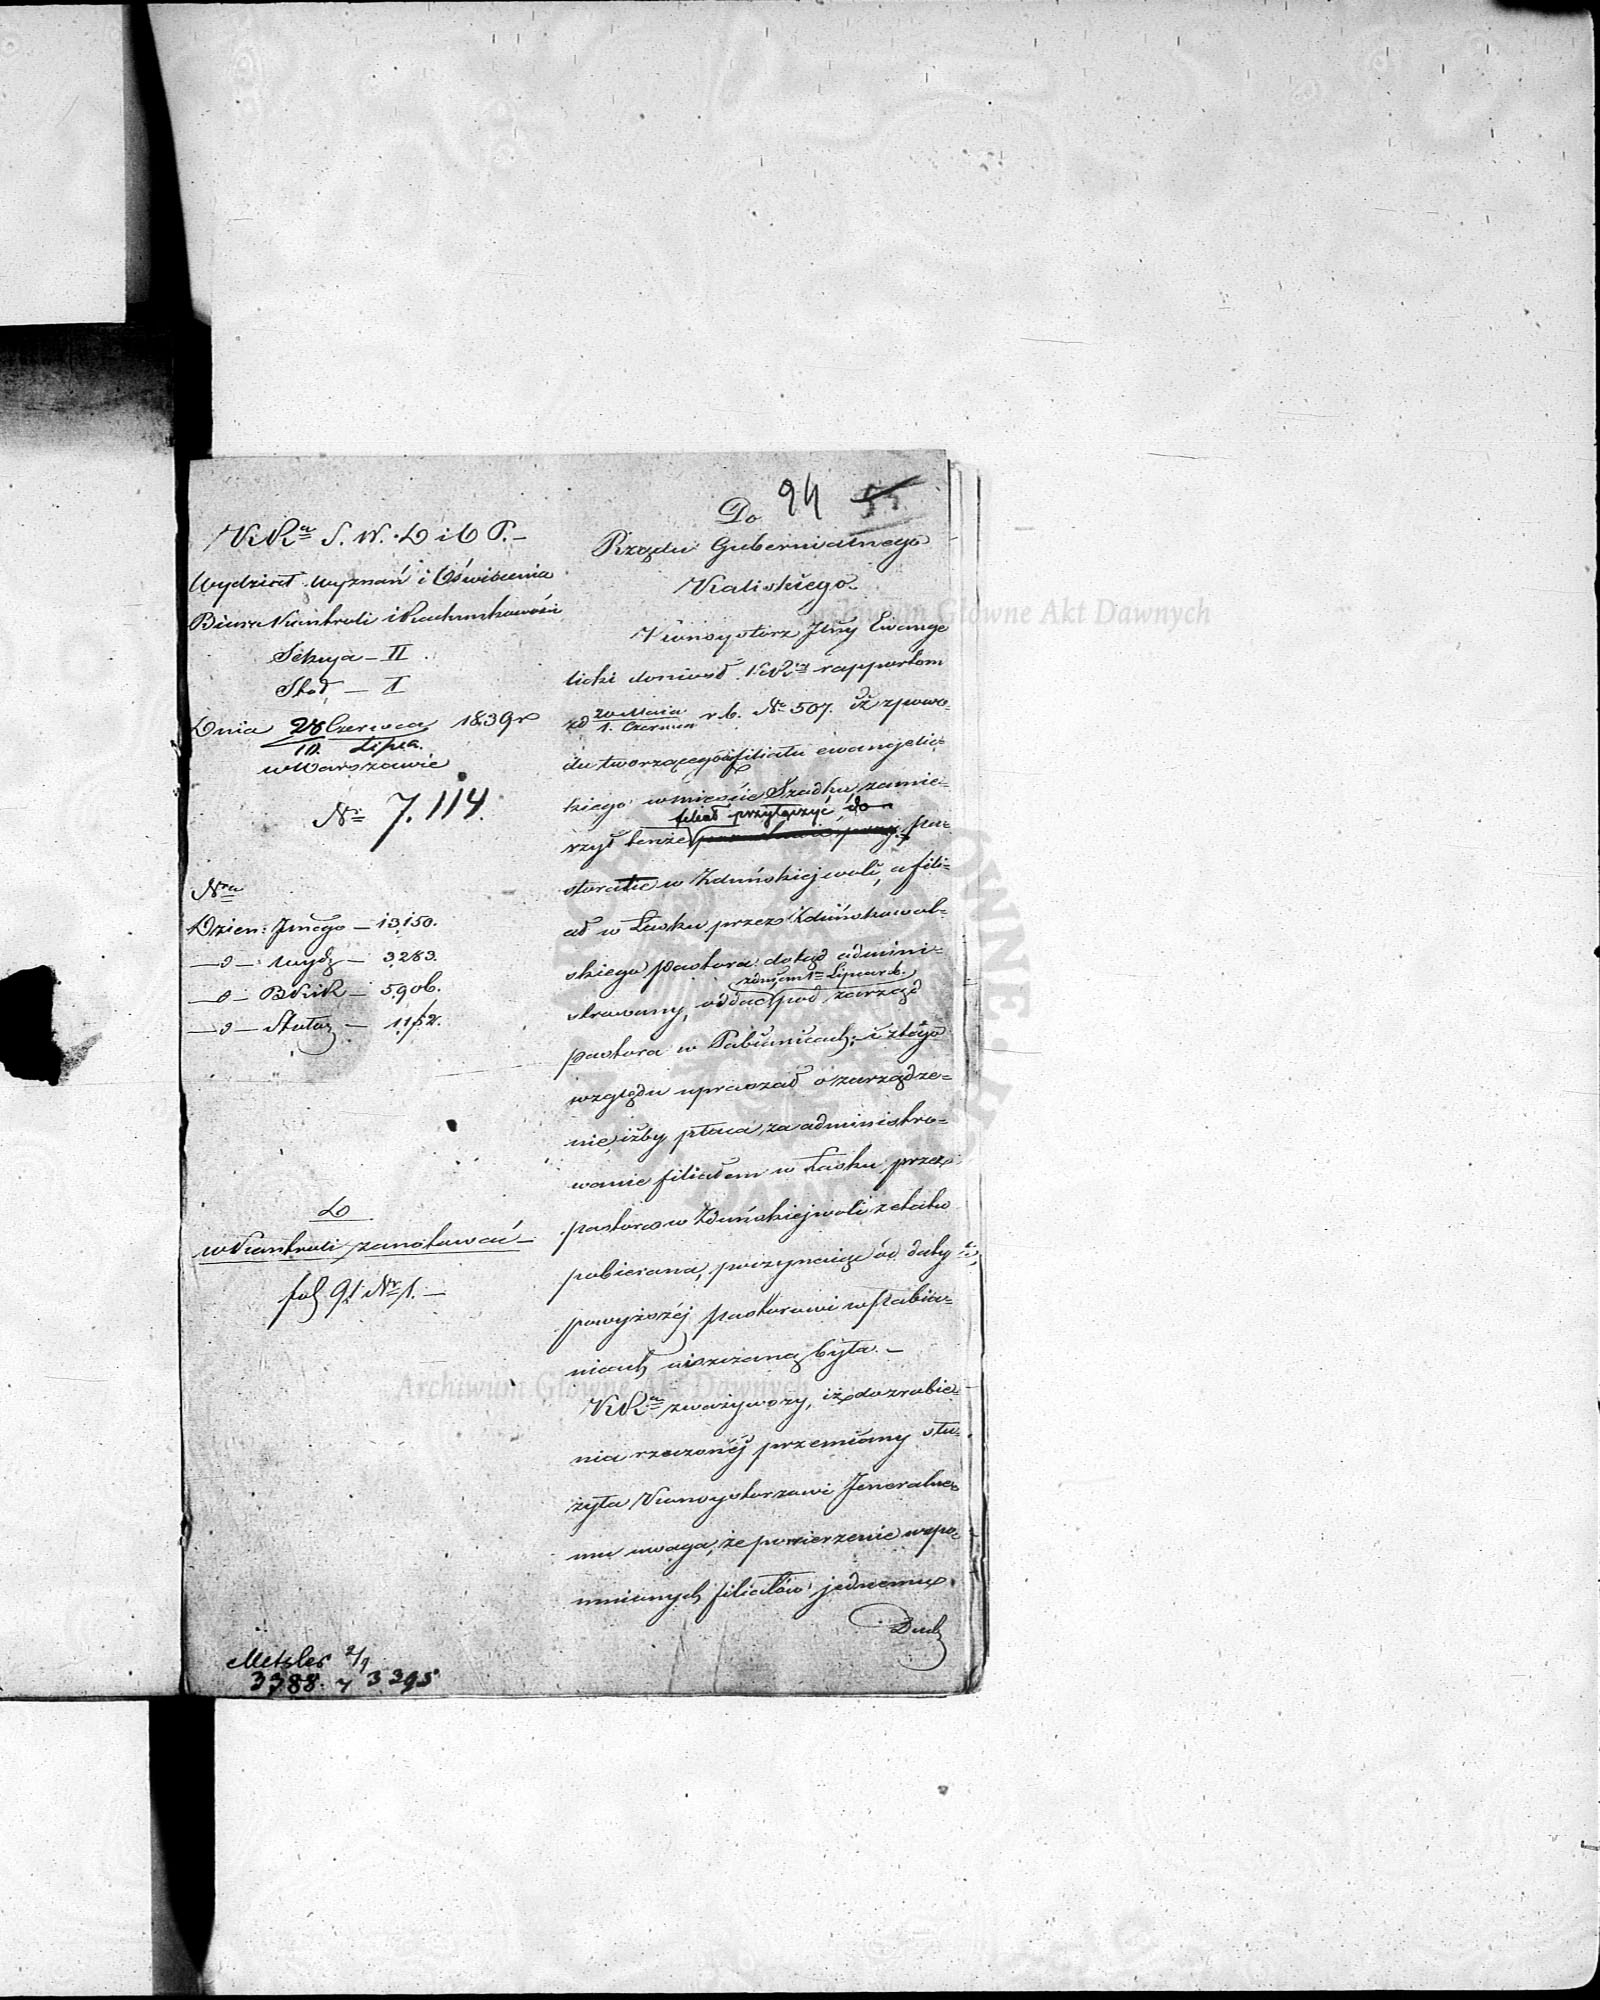 94
KRa S. W. D i O P.
Wydział Wyznań i Oświecenia
Biuro Kontroli i Rachunkowości
Sekcya – II
Stoł – I
Dnia 28 Czerwca 1839 r
10 Lipca
w Warszawie
No 7.114.
Nra
Dzien: Jnego – 13,150.
— " — Wydz – 3,283.
— " — BKiR – 5,906.
1152.
D
w Kontroli zanotować –
fol 91 Nr 1. –
Metzler 2/9
3388. 3395
Do
Rządu Gubernialnego
Kaliskiego.
Konsystorz Jlny Ewange
licki doniosł KRyi rapportem
zd 20 Maia
1. Czerwca r. b. No 507. iż z powo-
du tworzącego się filiału ewangelic-
kiego w mieście Szadku, zamie-
filiał przyłączyć do
rzył tenże Pa-
storatu w Zduńskiej woli, a fili-
ał w Łasku przez Zduńskowol-
skiego pastora dotąd admini-
z dniem 1m Lipca r. b.
strowany, oddać pod zarząd
pastora w Pabianicach; i z tego
względu upraszał o zarządze-
nie, iżby płaca za administro-
wanie filiałem w Łasku, przez
pastora w Zduńskiej woli z etatu
pobierana, poczynając od daty
powyższéj pastorowi w Pabia-
nicach uiszczaną była. –
KRa zważywszy, iż do zrobie-
nia rzeczonéj przemiany słu-
żyła Konsystorzowi Jeneralne-
mu uwaga, że powierzenie wspo-
mnianych filiałów jednemu
Duch
Archiwum Główne Akt Dawnych
Archiwum Główne Akt Dawnych